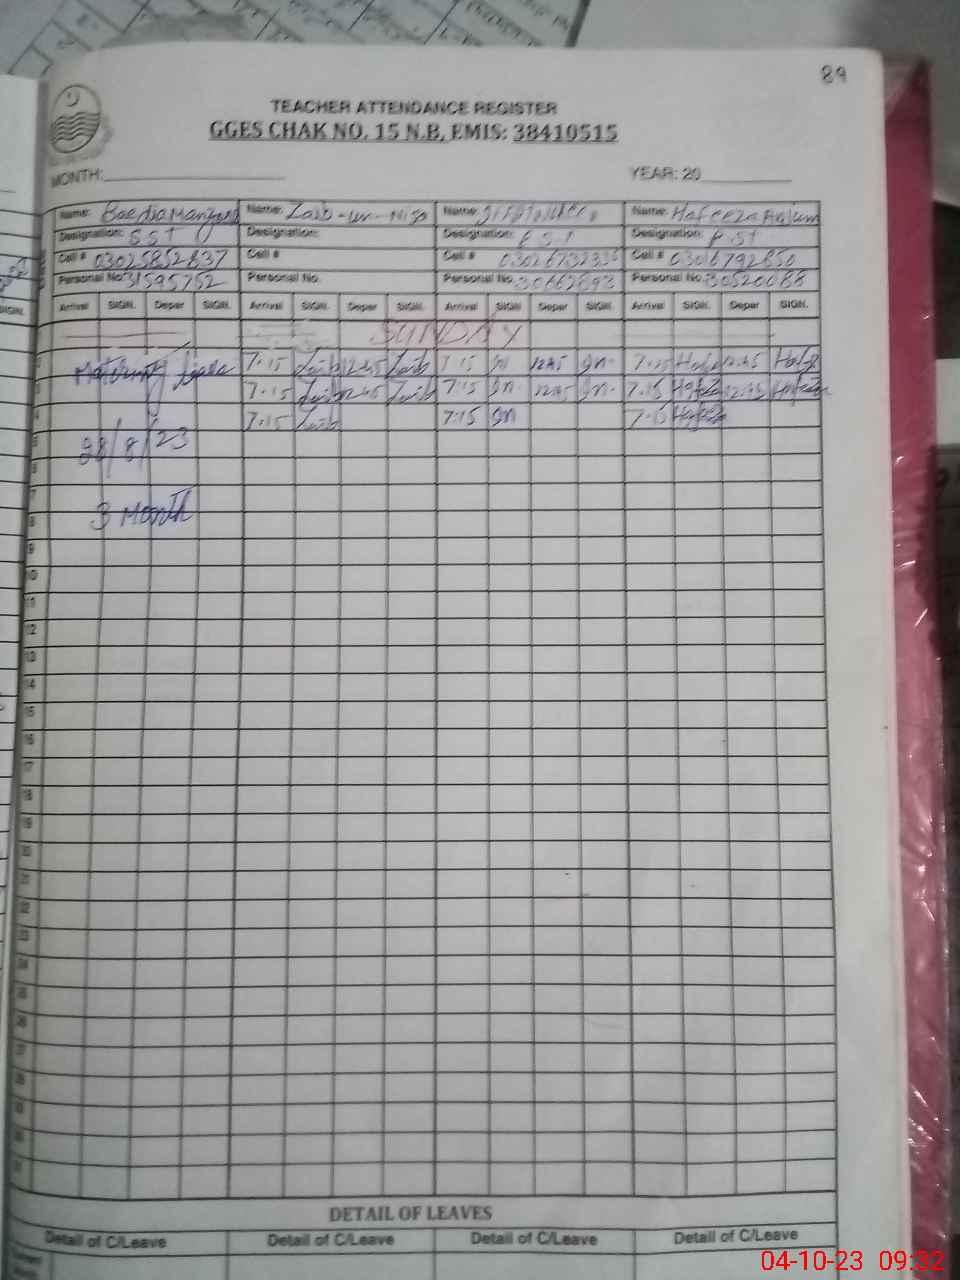 89
TEACHER ATTENDANCE REGISTER
GGES CHAK NO. 15 N.B, EMIS: 38410515
MONTH: YEAR: 20
Name: Name: Zaib-un-Nisa Name: Name: Hafeeza Anjum
Designation: SST Designation: Designation: P.S.T Designation: P.ST
Cell # 03025852837 Cell # Cell # Cell # 0306792850
Personal No. 31595752 Personal No. Personal No. 30662893 Personal No. 30520088
Arrival SIGN. Depar SIGN. Arrival SIGN. Depar SIGN. Arrival SIGN. Depar SIGN. Arrival SIGN. Depar SIGN.
SUNDAY
2 7:15 Zaib 12:45 Zaib 7:15 12:45 7:15 12:45
3 7:15 Zaib 12:45 Zaib 7:15 12:45 7:15 12:45
4 7:15 Zaib 7:15 7:15
5 28/8/23
6
7
8 3 Month
9
10
11
12
13
14
15
16
17
18
19
20
21
22
23
24
25
26
27
28
29
30
31
DETAIL OF LEAVES
Detail of C/Leave Detail of C/Leave Detail of C/Leave Detail of C/Leave
04-10-23 09:32